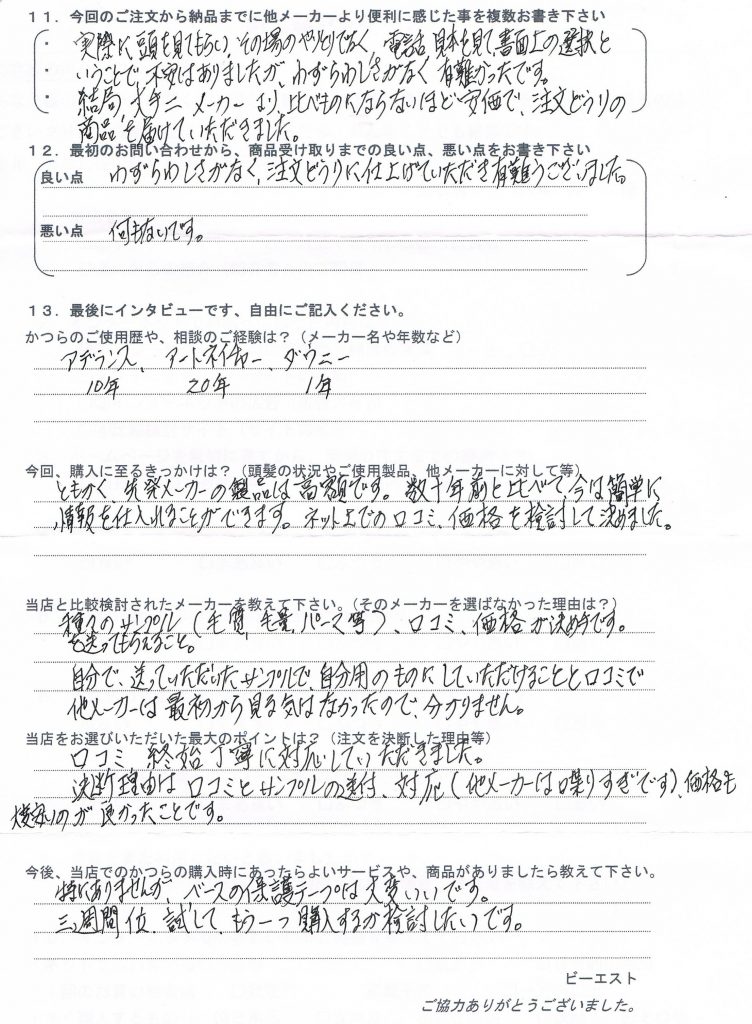 １１．今回のご注文から納品までに他メーカーより便利に感じた事を複数お書き下さい
・ 実際に頭を見てもらい、その場のやりとりでなく、電話、見本を見て、書面上の選択と
・ いうことで、不安はありましたが、わずらわしさがなく有難かったです。
・ 結局、大手二メーカーより、比べものにならないほど安価で、注文どうりの
商品を届けていただきました。
１２．最初のお問い合わせから、商品受け取りまでの良い点、悪い点をお書き下さい
良い点 わずらわしさがなく、注文どうりに仕上げていただき有難うございました。
悪い点 何もないです。
１３．最後にインタビューです、自由にご記入ください。
かつらのご使用歴や、相談のご経験は？（メーカー名や年数など）
アデランス、アートネイチャー、ダウニー
10年 20年 1年
今回、購入に至るきっかけは？（頭髪の状況やご使用製品、他メーカーに対して等）
ともかく、先発メーカーの製品は高額です。数十年前と比べて、今は簡単に
情報を仕入れることができます。ネット上での口コミ、価格を検討して決めました。
当店と比較検討されたメーカーを教えて下さい。（そのメーカーを選ばなかった理由は？）
種々のサンプル（毛質、毛量、ベース等）、口コミ、価格が決め手です。
を送ってもらえること。
自分で、送っていただいたサンプルで、自分用のものにしていただけることと口コミで
他メーカーは最初から見る気はなかったので、分かりません。
当店をお選びいただいた最大のポイントは？（注文を決断した理由等）
口コミ 終始丁寧に対応していただきました。
決断理由は口コミとサンプルの送付、対応（他メーカーは喋りすぎです）、価格も
のが良かったことです。
今後、当店でのかつらの購入時にあったらよいサービスや、商品がありましたら教えて下さい。
特にありませんが、ベースの保護テープは大変いいです。
三週間位、試して、もう一つ購入するか検討したいです。
ビーエスト
ご協力ありがとうございました。